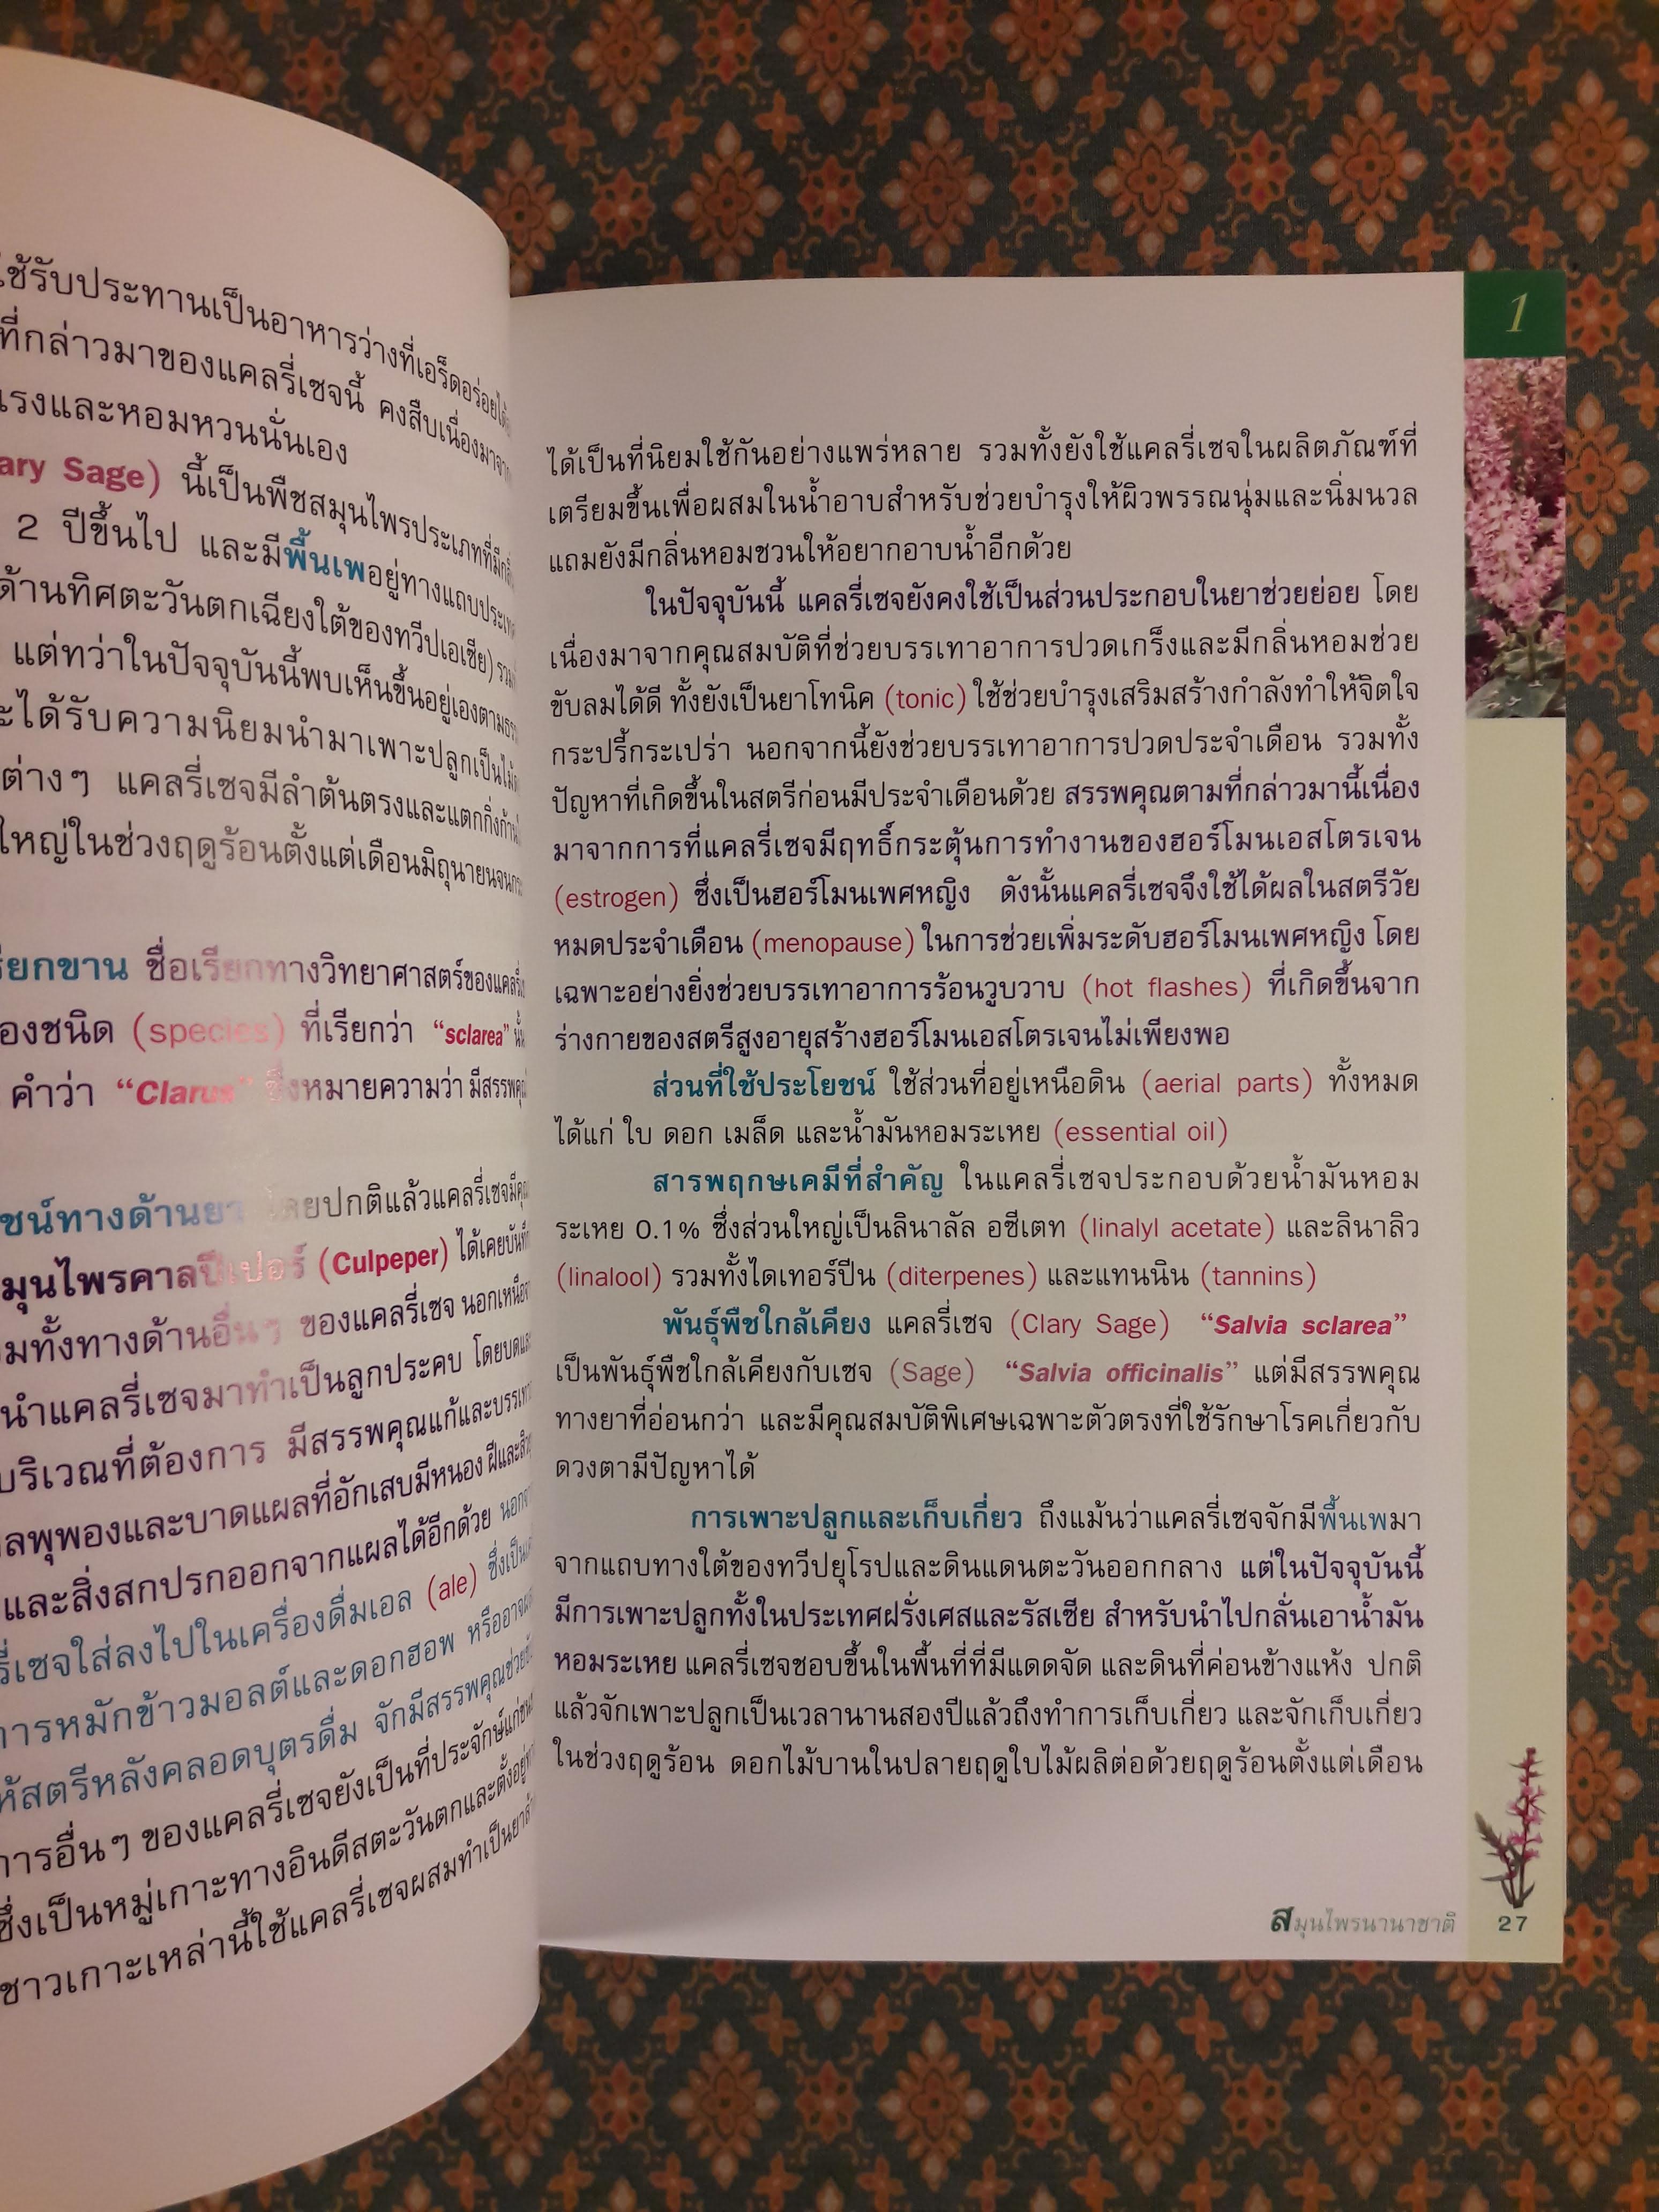 ใช้รับประทานเป็นอาหารว่างที่เอร็ดอร่อยได้
ที่กล่าวมาของแคลรี่เซจนี้ คงสืบเนื่องมาจาก
แรงและหอมหวนนั่นเอง
ary Sage) นี้เป็นพืชสมุนไพรประเภทที่มี
2 ปีขึ้นไป และมีพื้นเพอยู่ทางแถบประเทศ
ด้านทิศตะวันตกเฉียงใต้ของทวีปเอเชีย) รวม
แต่ทว่าในปัจจุบันนี้พบเห็นขึ้นอยู่เองตาม
ะได้รับความนิยมนำมาเพาะปลูกเป็นไม้
ต่างๆ แคลรี่เซจมีลำต้นตรงและแตกกิ่งก้าน
ใหญ่ในช่วงฤดูร้อนตั้งแต่เดือนมิถุนายนจน
รียกขาน ชื่อเรียกทางวิทยาศาสตร์ของแคลรี่
องชนิด (species) ที่เรียกว่า “sclarea” นั้น
คำว่า “Clarus” ซึ่งหมายความว่า มีสรรพคุณ
ชน์ทางด้านยา โดยปกติแล้วแคลรี่เซจมี
มุนไพรคาลปีเปอร์ (Culpeper) ได้เคยบันทึก
มทั้งทางด้านอื่นๆ ของแคลรี่เซจ นอกเหนือ
นำแคลรี่เซจมาทำเป็นลูกประคบ โดยบด
บริเวณที่ต้องการ มีสรรพคุณแก้และบรรเทา
ลพุพองและบาดแผลที่อักเสบมีหนอง ฝีและ
และสิ่งสกปรกออกจากแผลได้อีกด้วย
รี่เซจใส่ลงไปในเครื่องดื่มเอล (ale) ซึ่งเป็น
การหมักข้าวมอลต์และดอกฮอพ หรืออาจ
ห้สตรีหลังคลอดบุตรดื่ม จักมีสรรพคุณช่วย
การอื่นๆ ของแคลรี่เซจยังเป็นที่ประจักษ์แก่
ซึ่งเป็นหมู่เกาะทางอินดีสตะวันตกและตั้งอยู่
ชาวเกาะเหล่านี้ใช้แคลรี่เซจผสมทำเป็นยา
1
ได้เป็นที่นิยมใช้กันอย่างแพร่หลาย รวมทั้งยังใช้แคลรี่เซจในผลิตภัณฑ์ที่
เตรียมขึ้นเพื่อผสมในน้ำอาบสำหรับช่วยบำรุงให้ผิวพรรณนุ่มและนิ่มนวล
แถมยังมีกลิ่นหอมชวนให้อยากอาบน้ำอีกด้วย
ในปัจจุบันนี้ แคลรี่เซจยังคงใช้เป็นส่วนประกอบในยาช่วยย่อย โดย
เนื่องมาจากคุณสมบัติที่ช่วยบรรเทาอาการปวดเกร็งและมีกลิ่นหอมช่วย
ขับลมได้ดี ทั้งยังเป็นยาโทนิค (tonic) ใช้ช่วยบำรุงเสริมสร้างกำลังทำให้จิตใจ
กระปรี้กระเปร่า นอกจากนี้ยังช่วยบรรเทาอาการปวดประจำเดือน รวมทั้ง
ปัญหาที่เกิดขึ้นในสตรีก่อนมีประจำเดือนด้วย สรรพคุณตามที่กล่าวมานี้เนื่อง
มาจากการที่แคลรี่เซจมีฤทธิ์กระตุ้นการทำงานของฮอร์โมนเอสโตรเจน
(estrogen) ซึ่งเป็นฮอร์โมนเพศหญิง ดังนั้นแคลรี่เซจจึงใช้ได้ผลในสตรีวัย
หมดประจำเดือน (menopause) ในการช่วยเพิ่มระดับฮอร์โมนเพศหญิง โดย
เฉพาะอย่างยิ่งช่วยบรรเทาอาการร้อนวูบวาบ (hot flashes) ที่เกิดขึ้นจาก
ร่างกายของสตรีสูงอายุสร้างฮอร์โมนเอสโตรเจนไม่เพียงพอ
ส่วนที่ใช้ประโยชน์ ใช้ส่วนที่อยู่เหนือดิน (aerial parts) ทั้งหมด
ได้แก่ ใบ ดอก เมล็ด และน้ำมันหอมระเหย (essential oil)
สารพฤกษเคมีที่สำคัญ ในแคลรี่เซจประกอบด้วยน้ำมันหอม
ระเหย 0.1% ซึ่งส่วนใหญ่เป็นลินาลัล อซีเตท (linalyl acetate) และลินาลิว
(linalool) รวมทั้งไดเทอร์ปีน (diterpenes) และแทนนิน (tannins)
พันธุ์พืชใกล้เคียง แคลรี่เซจ (Clary Sage) “Salvia sclarea”
เป็นพันธุ์พืชใกล้เคียงกับเซจ (Sage) “Salvia officinalis” แต่มีสรรพคุณ
ทางยาที่อ่อนกว่า และมีคุณสมบัติพิเศษเฉพาะตัวตรงที่ใช้รักษาโรคเกี่ยวกับ
ดวงตามีปัญหาได้
การเพาะปลูกและเก็บเกี่ยว ถึงแม้นว่าแคลรี่เซจจักมีพื้นเพมา
จากแถบทางใต้ของทวีปยุโรปและดินแดนตะวันออกกลาง แต่ในปัจจุบันนี้
มีการเพาะปลูกทั้งในประเทศฝรั่งเศสและรัสเซีย สำหรับนำไปกลั่นเอาน้ำมัน
หอมระเหย แคลรี่เซจชอบขึ้นในพื้นที่ที่มีแดดจัด และดินที่ค่อนข้างแห้ง ปกติ
แล้วจักเพาะปลูกเป็นเวลานานสองปีแล้วถึงทำการเก็บเกี่ยว และจักเก็บเกี่ยว
ในช่วงฤดูร้อน ดอกไม้บานในปลายฤดูใบไม้ผลิต่อด้วยฤดูร้อนตั้งแต่เดือน
สมุนไพรนานาชาติ 27